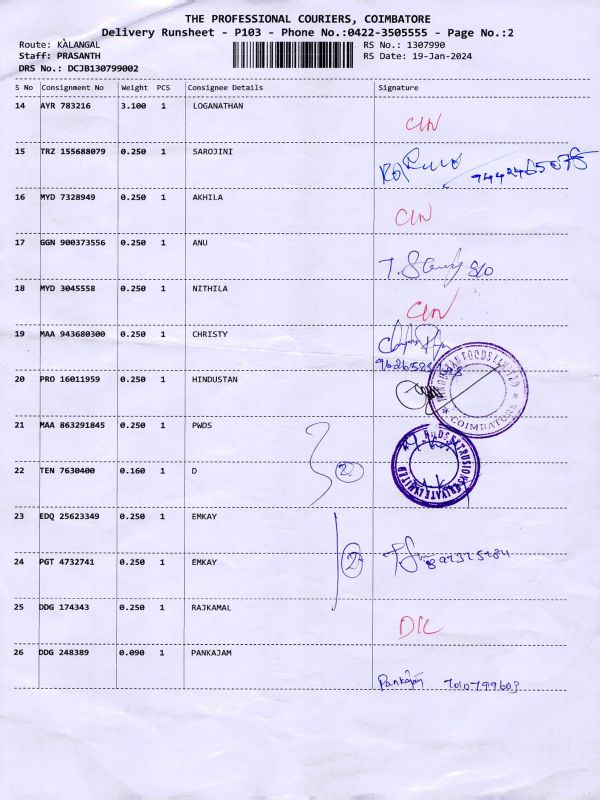 THE PROFESSIONAL COURIERS, COIMBATORE
Delivery Runsheet - P103 - Phone No.:0422-3505555 - Page No.:2
Route: KALANGAL RS No.: 1307990
Staff: PRASANTH RS Date: 19-Jan-2024
DRS No.: DCJB130799002
S No Consignment No Weight PCS Consignee Details Signature
14 AYR 783216 3.100 1 LOGANATHAN
15 TRZ 155688079 0.250 1 SAROJINI
16 MYD 7328949 0.250 1 AKHILA
17 GGN 900373556 0.250 1 ANU
18 MYD 3045558 0.250 1 NITHILA
19 MAA 943680300 0.250 1 CHRISTY
20 PRO 16011959 0.250 1 HINDUSTAN
COIMBATORE
21 MAA 863291845 0.250 1 PWDS
22 TEN 7630400 0.160 1 D
2
23 EDQ 25623349 0.250 1 EMKAY
24 PGT 4732741 0.250 1 EMKAY
2
25 DDG 174343 0.250 1 RAJKAMAL
26 DDG 248389 0.090 1 PANKAJAM
Pankajam 7010799603